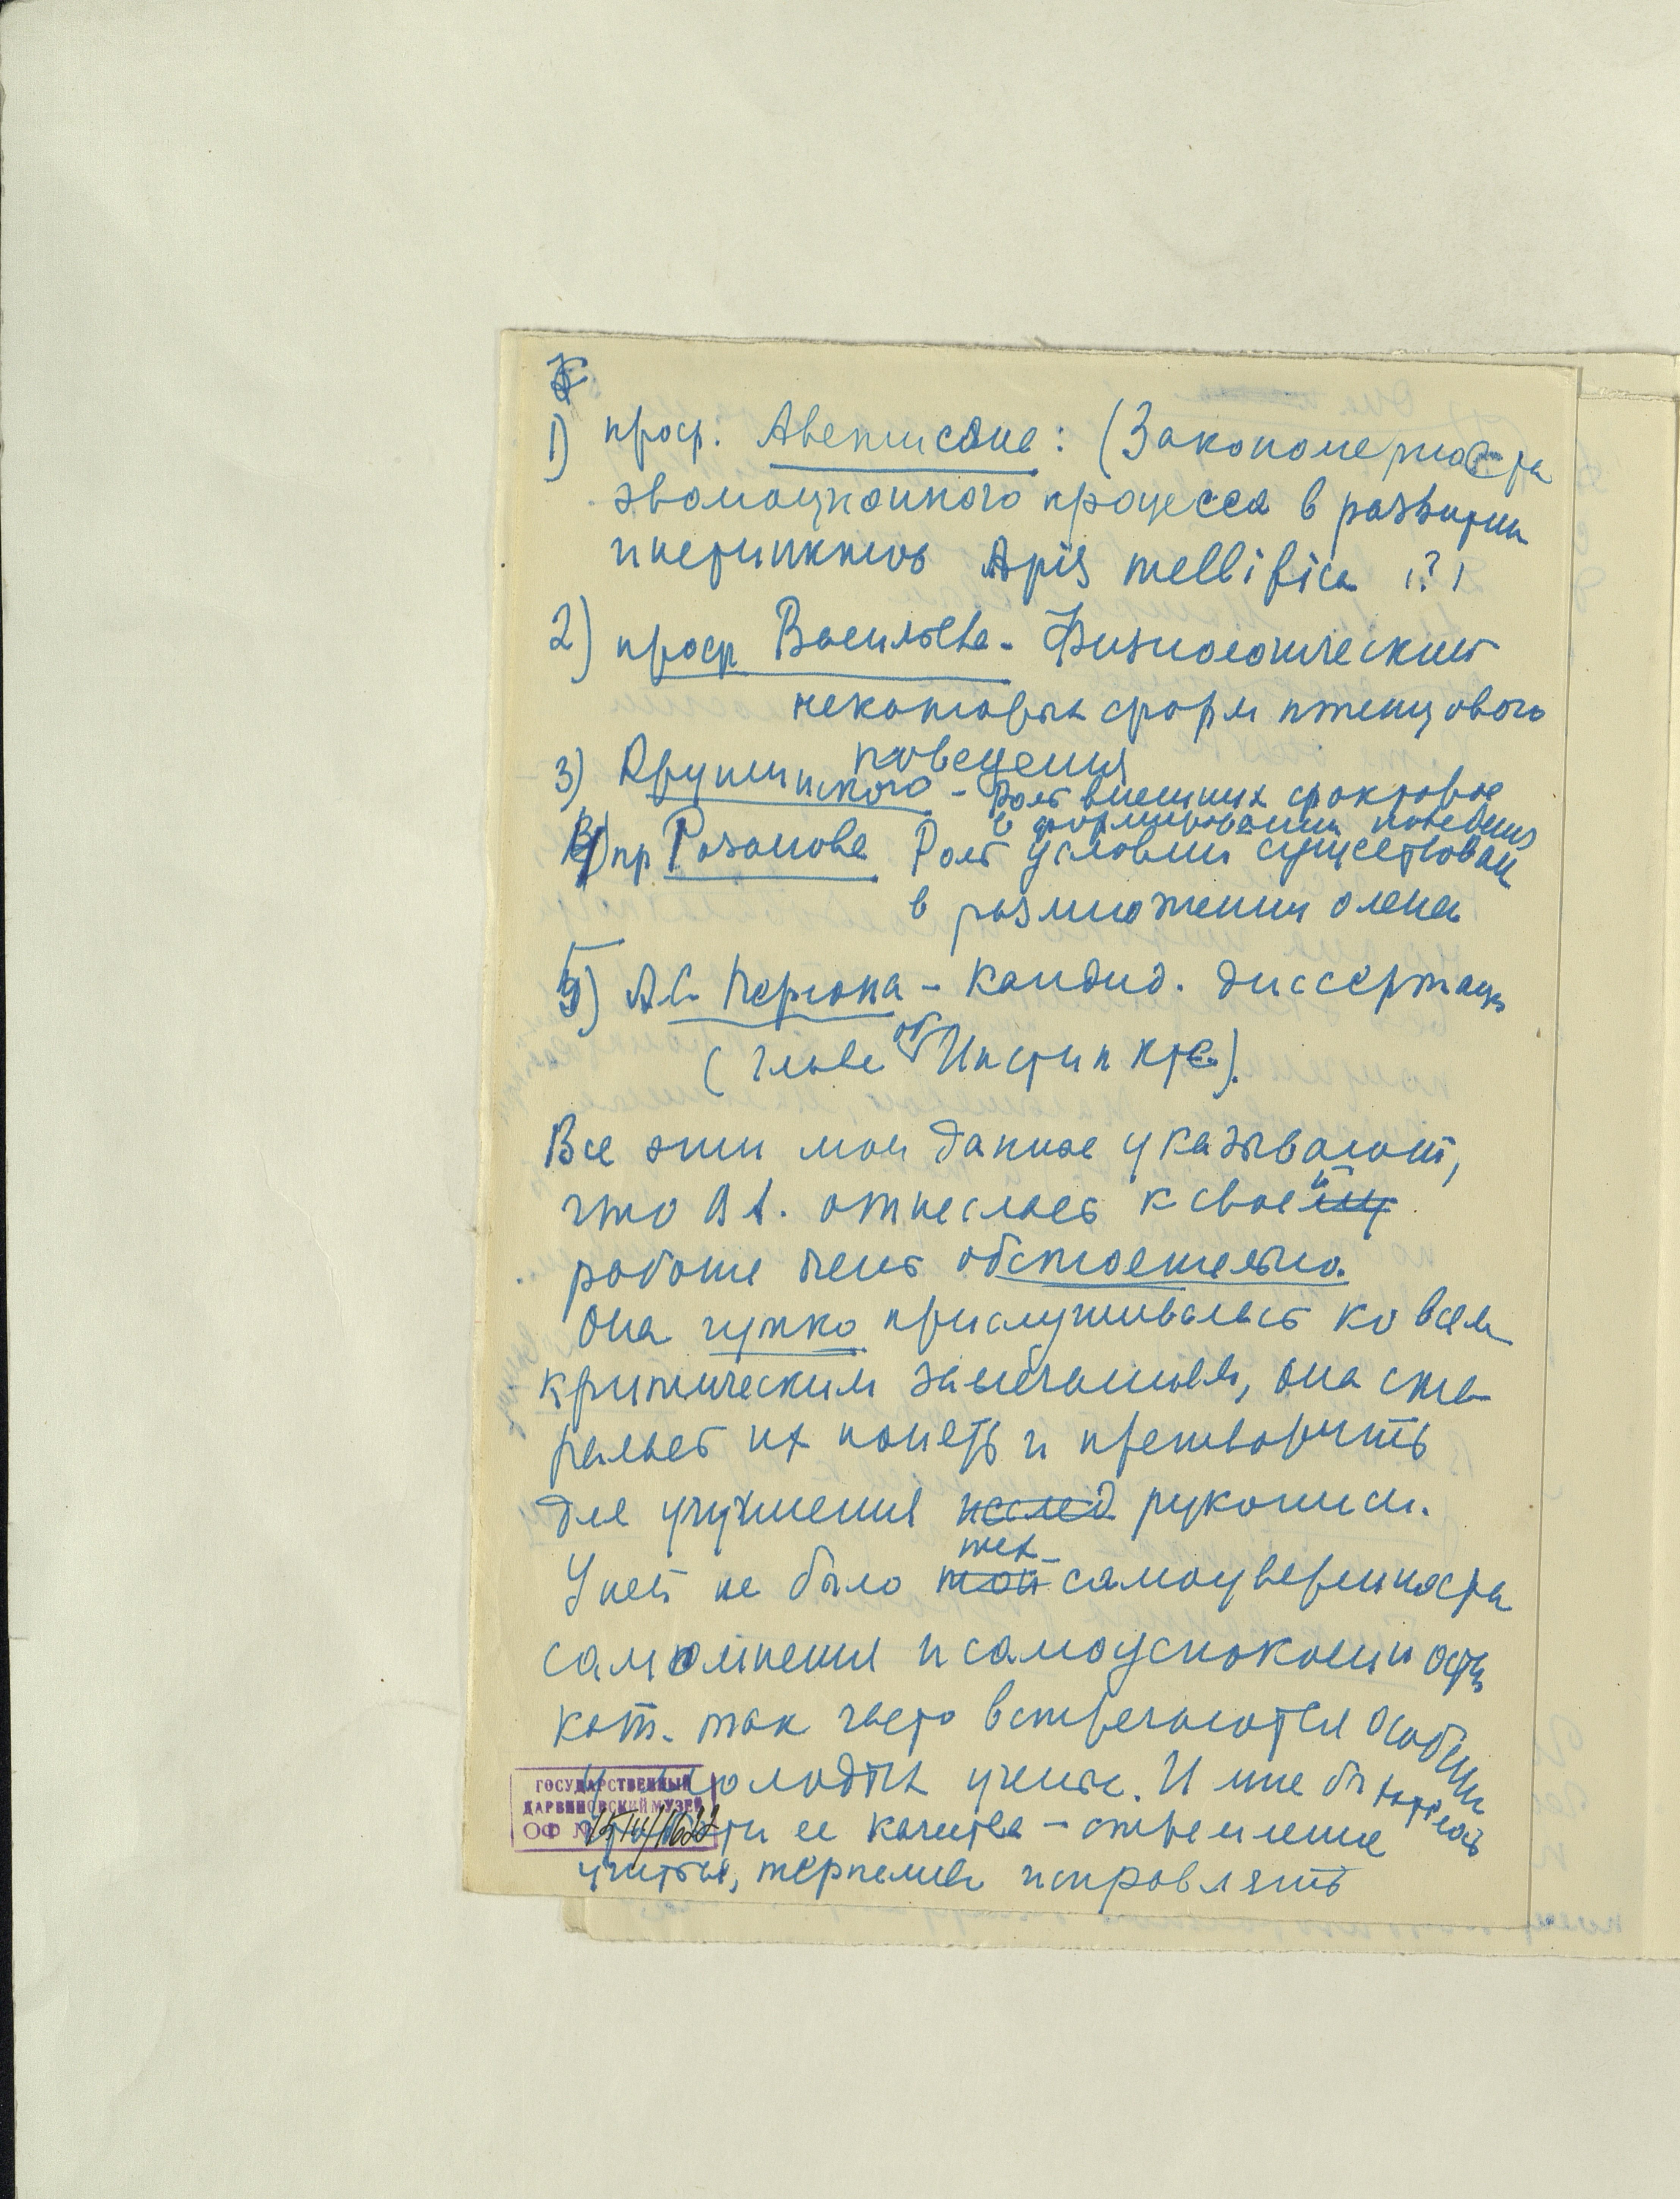 1) проф. Аветисяна: (Закономерности
эволюционного процесса в развитии
инстинктов Apis mellifica (?)
2) проф Васильева - Физиологический
некоторых форм птенцового
поведения
3) Крушинского - Роль внешних факторов
в формировании поведения
4) пр Розанова Роль условий существован
в размножении оленя
5) А.С. - Кандид. диссертация
(глава об Инстинкте).
Все эти мои данные указывают,
что отнеслась к своей
работе очень обстоятельно.
Она чутко прислушивалась ко всем
критическим замечаниям, она ста
ралась их понять и претворить
для улучшения исслед рукописи.
У ней не было той тех самоуверенности
самомнения и самоуспокоенности
кот. так часто встречаются особенно
у молодых ученых. И мне бы хотелось
ее качества - стремление
учиться, терпеливо исправлять
ГОСУДАРСТВЕННЫЙ
ДАРВИНОВСКИЙ МУЗЕЙ
ОФ №